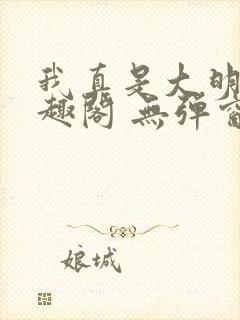 我真是大明
趣阁 無弹窗
娘城